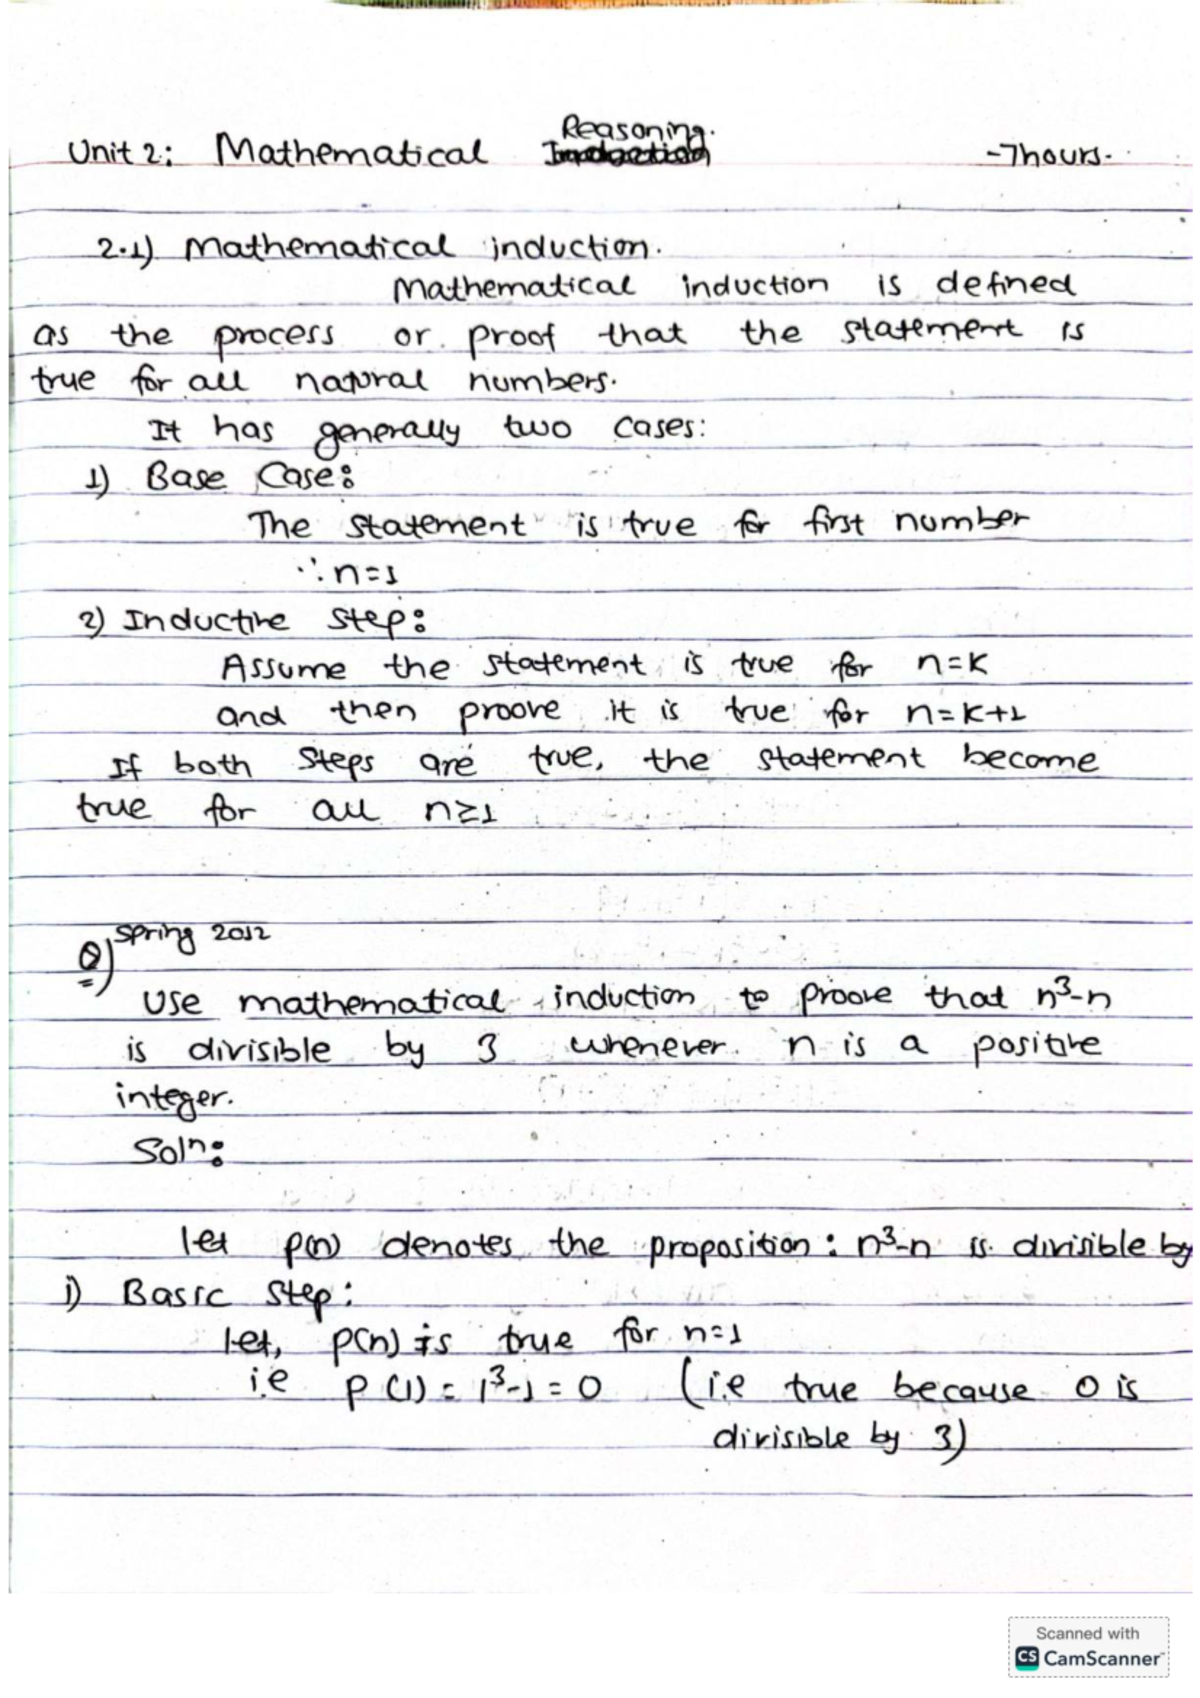 Unit 2: Mathematical Reasoning. -7hours.
2.1) Mathematical induction.
Mathematical induction is defined
as the process or proof that the statement is
true for all natural numbers.
It has generally two cases:
1) Base Case:
The statement is true for first number
∴ n=1
2) Inductive step:
Assume the statement is true for n=k
and then proove it is true for n=k+1
If both steps are true, the statement become
true for all n≥1
Q) Spring 2012
Use mathematical induction to proove that n³-n
is divisible by 3 whenever n is a positive
integer.
Solⁿ:
let p(n) denotes the proposition: n³-n is divisible by
i) Basic step:
let, p(n) is true for n=1
i.e p(1) = 1³-1 = 0 (i.e true because 0 is
divisible by 3)
Scanned with
CS CamScanner